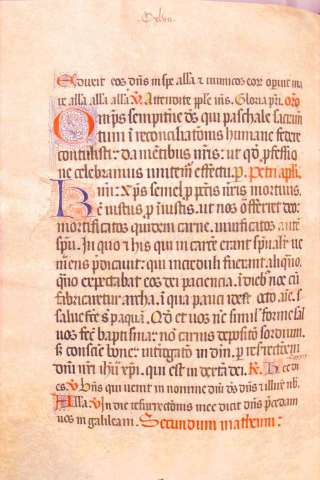 ·Cxlvii·
Eduxit eos dn̄s in spe alla ⁊ inimicos eoꝝ operuit ma
re alla alla alla ℣ Attendite pp̄le m̄s. Gloria pr̄i. Oro
Omp̄s sempitne d̄s qui paschale sacram̄
tum i reconciliatiōis humane federe
contulisti: da mentibus nr̄is: ut qd̄ ꝓfessio
ne celebramus imitem̄ effectu. p. Petri apl̄i.
Kmi: Xp̄s semel ꝓ pctis nr̄is mortuus
ē iustus ꝓ iniustis: ut nos offerret deo:
mortificatos quidem carne. uiuificatos aūte
spū. In quo ⁊ hiis qui in carcere erant spūalit̄ ue
niens p̄dicauit: qui increduli fuerant aliqūo,
qn̄o expectabat eos dei paciencia. ī dieb noe cū
fabricaretur archa. ī qua pauci idest octo aīe. s
salue fcē st̄ ꝑ aquā. Qd̄ et uos nc̄ simil̄ forme sal
uos fec̄ baptisma: nō carnis depositō sordium.
s; conscīe bone interrogatō in dm̄. ꝑ resrectōem
dn̄i nr̄i ihū xp̄i. qui est in dext̄a dei. ℟. Hec di
es. ℣ Bn̄s qui uenit in nomine dn̄i d̄s dn̄s ⁊ illux̄ nb̄.
Alla. ℣ In die resurrectionis mee dicit dn̄s p̄cedam
uos in galileam. Secundum matheum: